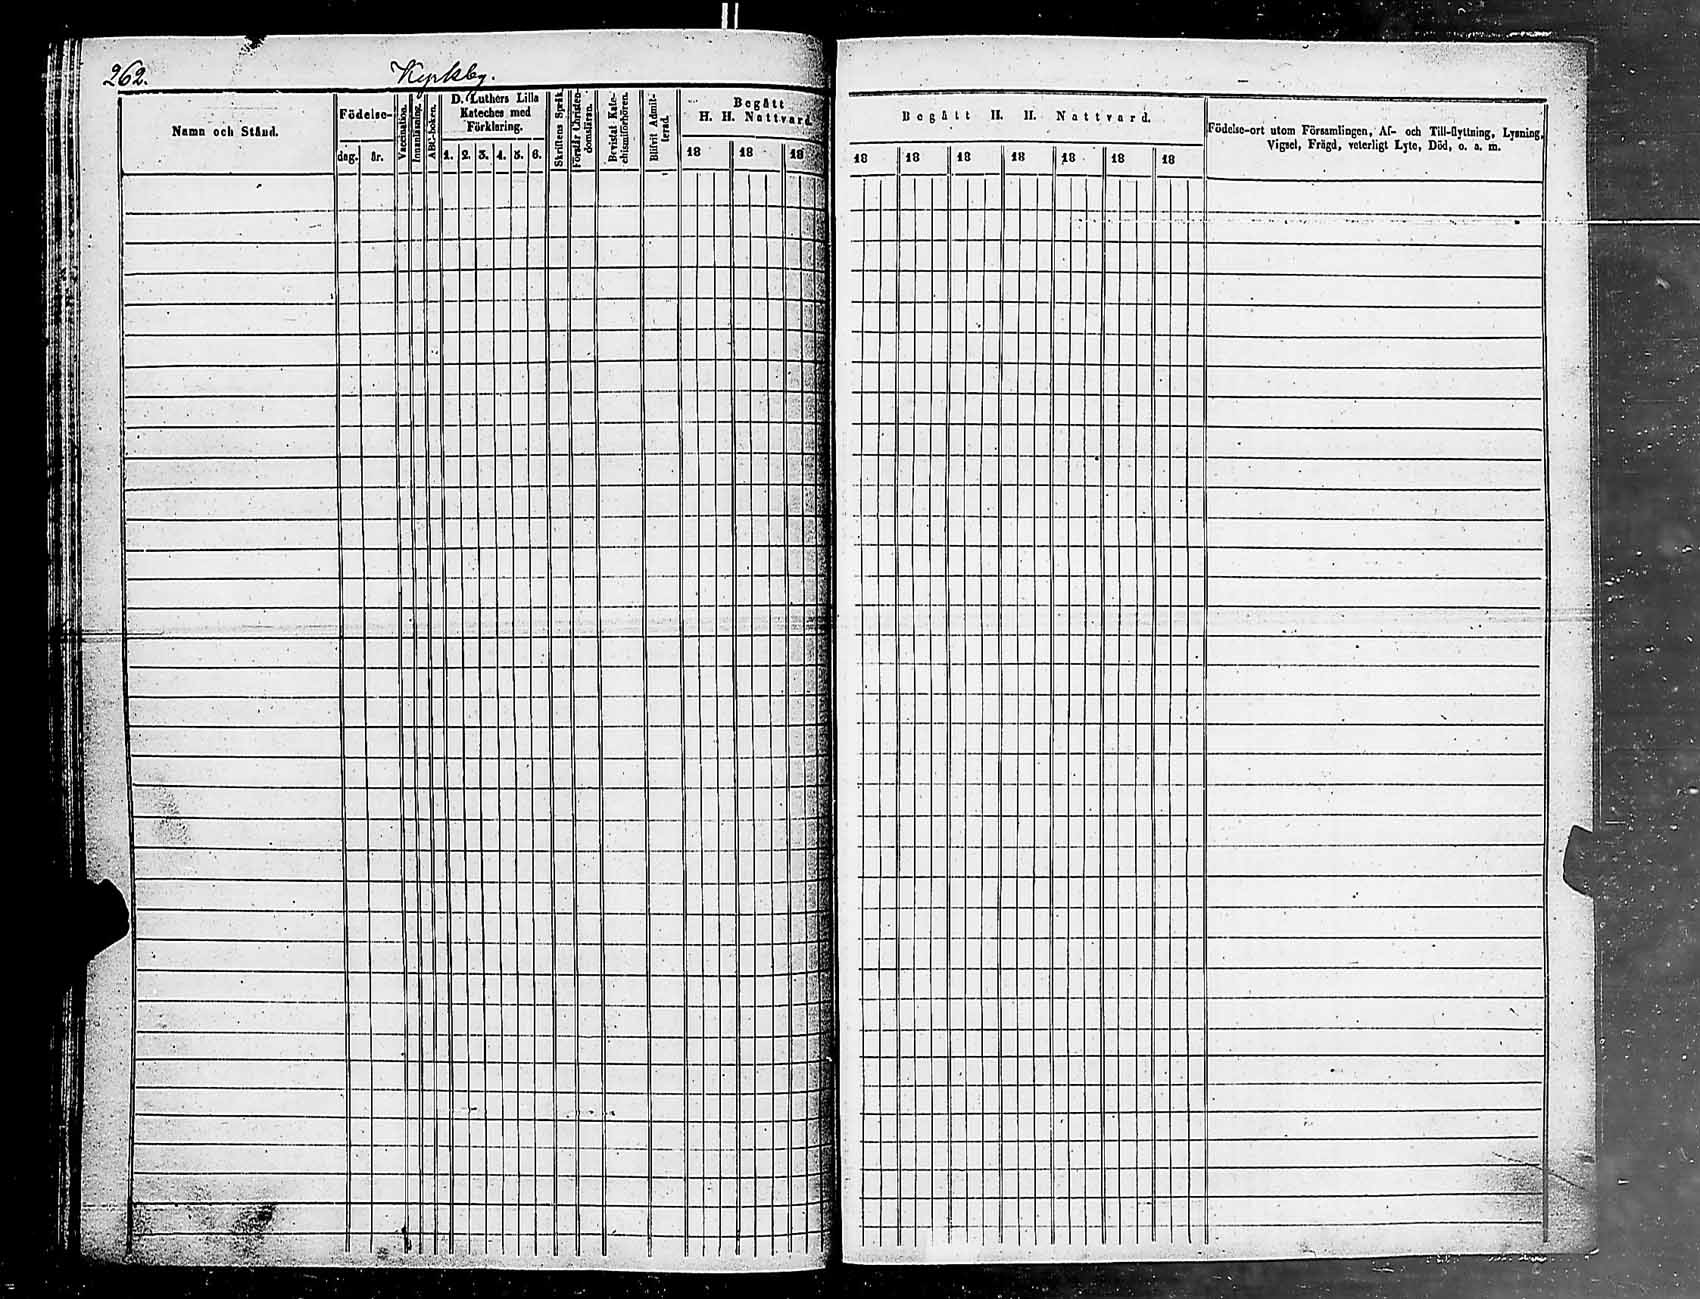 262.
Kyrkby.
Namn och Stånd.
Födelse-
dag.
år.
Vaccination.
Innanläsning.
ABC-boken.
D. Luthers Lilla
Kateches med
Förklaring.
1. 2. 3. 4. 5. 6.
Skriftens Språk.
Förstår Christen-
domsläran.
Bevistat Kate-
chismiförhören.
Blifvit Admit-
terad.
Begått
H. H. Nattvard.
18 18 18
Begått H. H. Nattvard.
18 18 18 18 18 18 18
Födelse-ort utom Församlingen, Af- och Till-flyttning, Lysning,
Vigsel, Frägd, veterligt Lyte, Död, o. s. m.